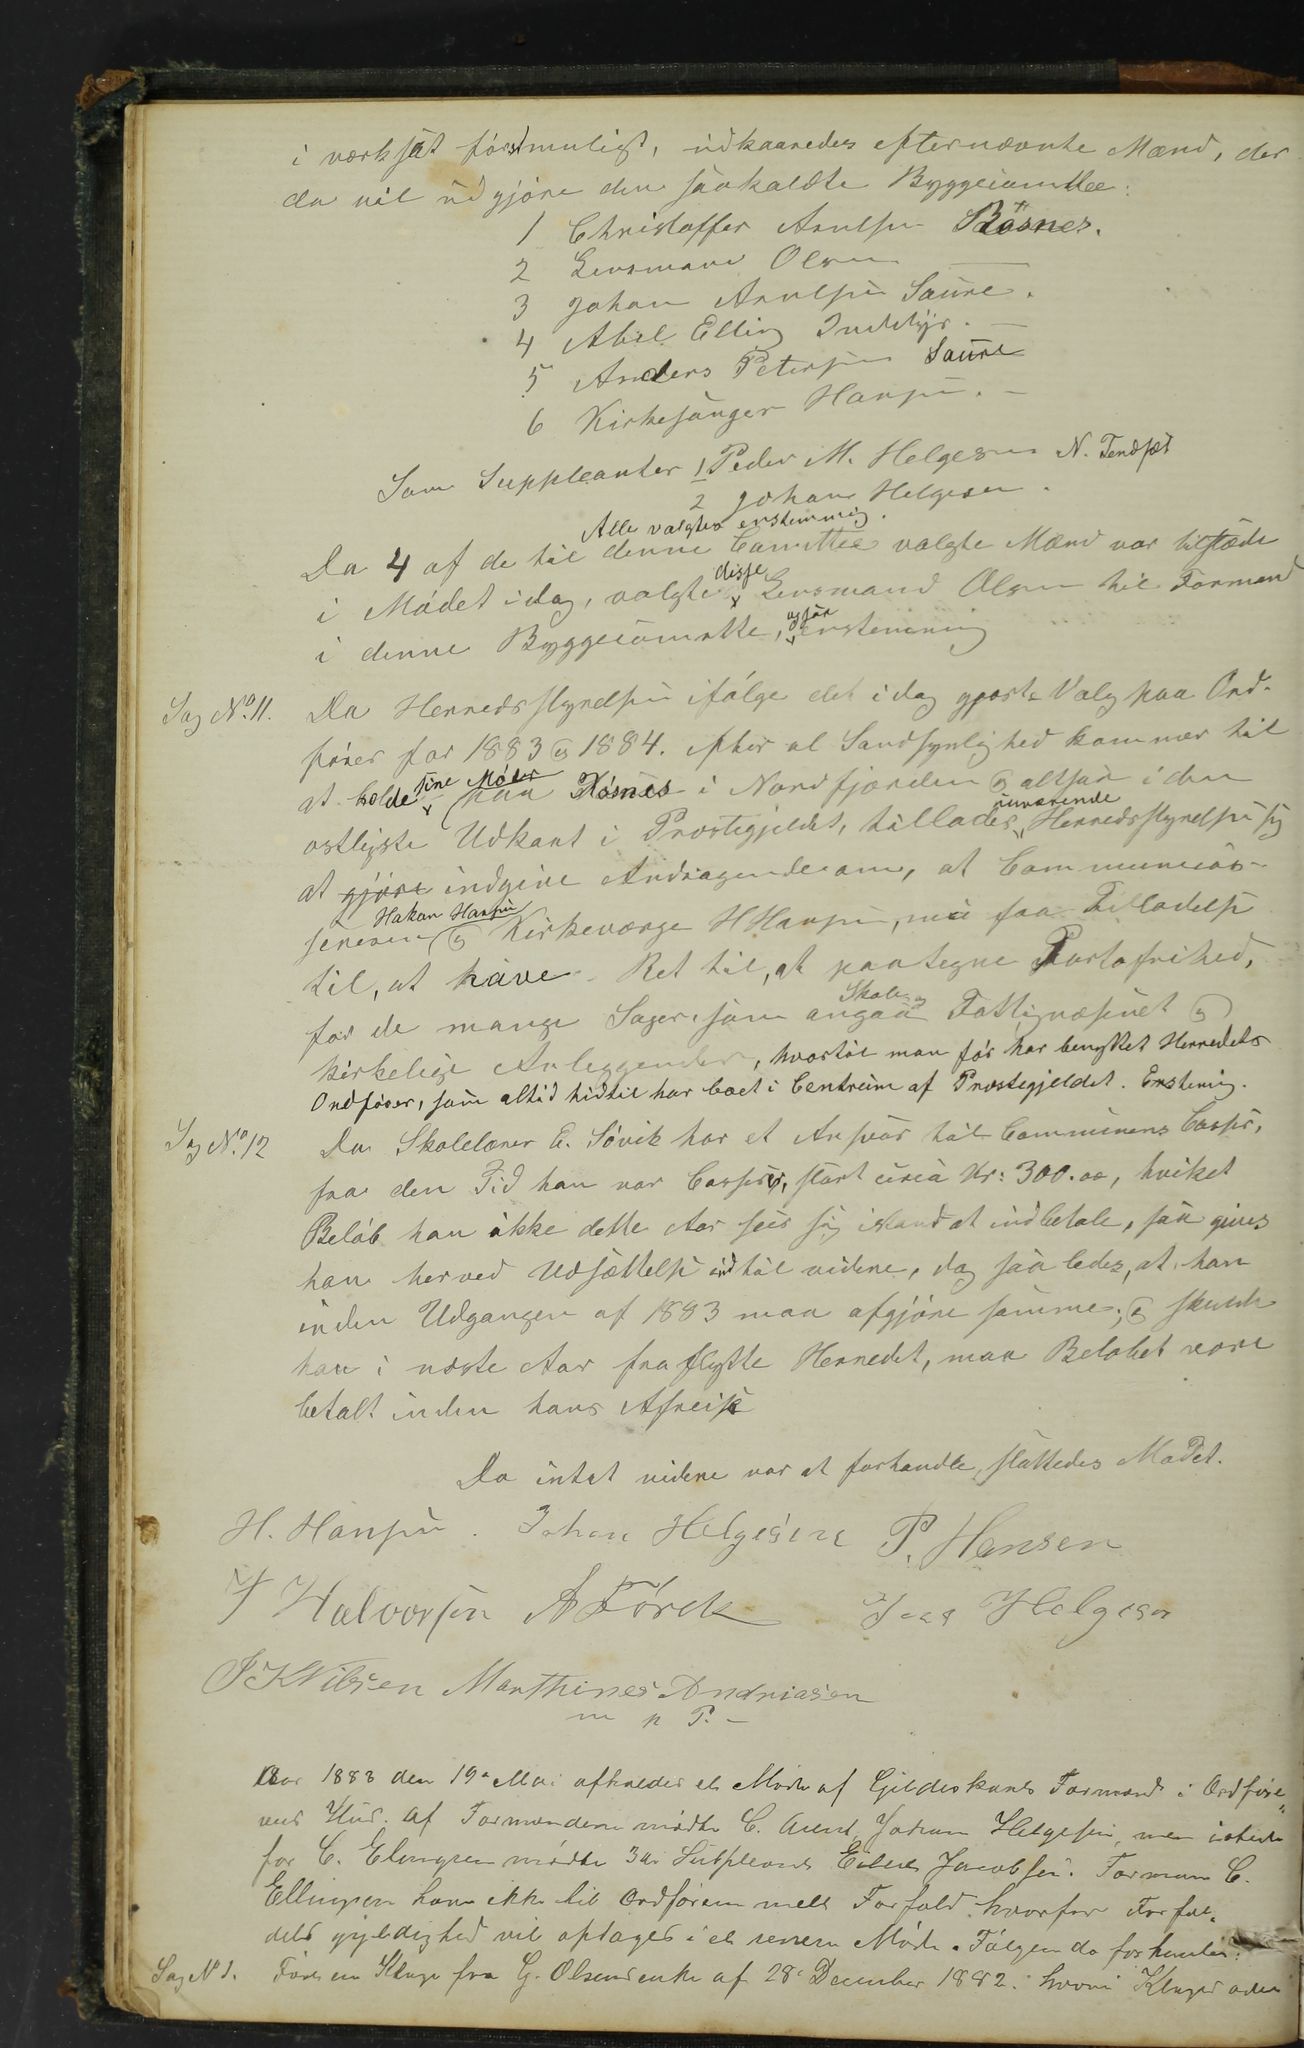 i værksat førstmuligt, udkaaredes efternævnte Mænd, der
da vil udgjøre den saakaldte Byggecomittee:
1 Christoffer Arntsen Røsnes.
2 Lensmand Olsen —
3 Johan Arntsen Saura.
4 Abel Elling Inddyr. —
5 Anders Petersen Saura
6 Kirkesanger Hansen. —
Som Suppleanter 1 Peder M. Helgesen N. Tendset
2 Johan Helgesen.
Alle valgtes enstemmig.
Da 4 af de til denne Comittee valgte Mænd var tilstæde
i Mødet idag, valgte disse Lensmand Olsen til Formand
i denne Byggecomitte, ogsaa enstemmig
Sag No. 11. Da Herredsstyrelsen ifølge det idag gjorte Valg paa Ord-
fører for 1883 og 1884. efter al Sandsynlighed kommer til
at holde sine Møder paa Røsnes i Nordfjorden og altsaa i den
østligste Udkant i Præstegjeldet, tillades nuværende Herredsstyrelse sig
at gjøre indgive Andragende om, at Communecas-
sereren Hakon Hansen og Kirkeværge H Hansen, maa faa Tilladelse
til, at have Ret til, at paategne Portofrihed,
for de mange Sager, som angaa Skole og Fattigvæsenet og
kirkelige Anleggender, hvortil man før har benyttet Herredets
Ordfører, som altid hidtil har boet i Centrum af Præstegjeldet. Enstemig.
Sag No. 12 Da Skolelærer E. Søvik har et Ansvar til Communens Casse,
fra den Tid han var Casserer, stort circa Kr: 300.00, hvilket
Beløb han ikke dette Aar seer sig istand at indbetale, saa gives
han herved Udsættelse indtil videre, dog saaledes, at han
inden Udgangen af 1883 maa afgjøre samme; og skulde
han i næste Aar fraflytte Herredet, maa Beløbet være
betalt inden hans Afreise
Da intet videre var at forhandle, sluttedes Mødet.
H. Hansen. Johan Helgesen P. Hansen
Halvorsen A Førck Jens Helgesen
J K Nilsen Marthines Andriasen
m p P. —
Aar 1883 den 19de Mai afholdes et Møde af Gildeskaals Formænd i Ordføre-
rens Hus. Af Formændene mødte C. Arent, Johan Helgesen, men istedet
for C. Elingsen mødte 3die Supleant Jacobsen. Formand C.
Ellingsen har ikke til Ordføreren meldt Forfald hvorfor Forfal-
dets gyldighed vil optages i et senere Møde. Følgende forhandles:
Sag No 1. Førtes en Klage fra G. Olsens enke af 28de December 1882. hvori Klages over